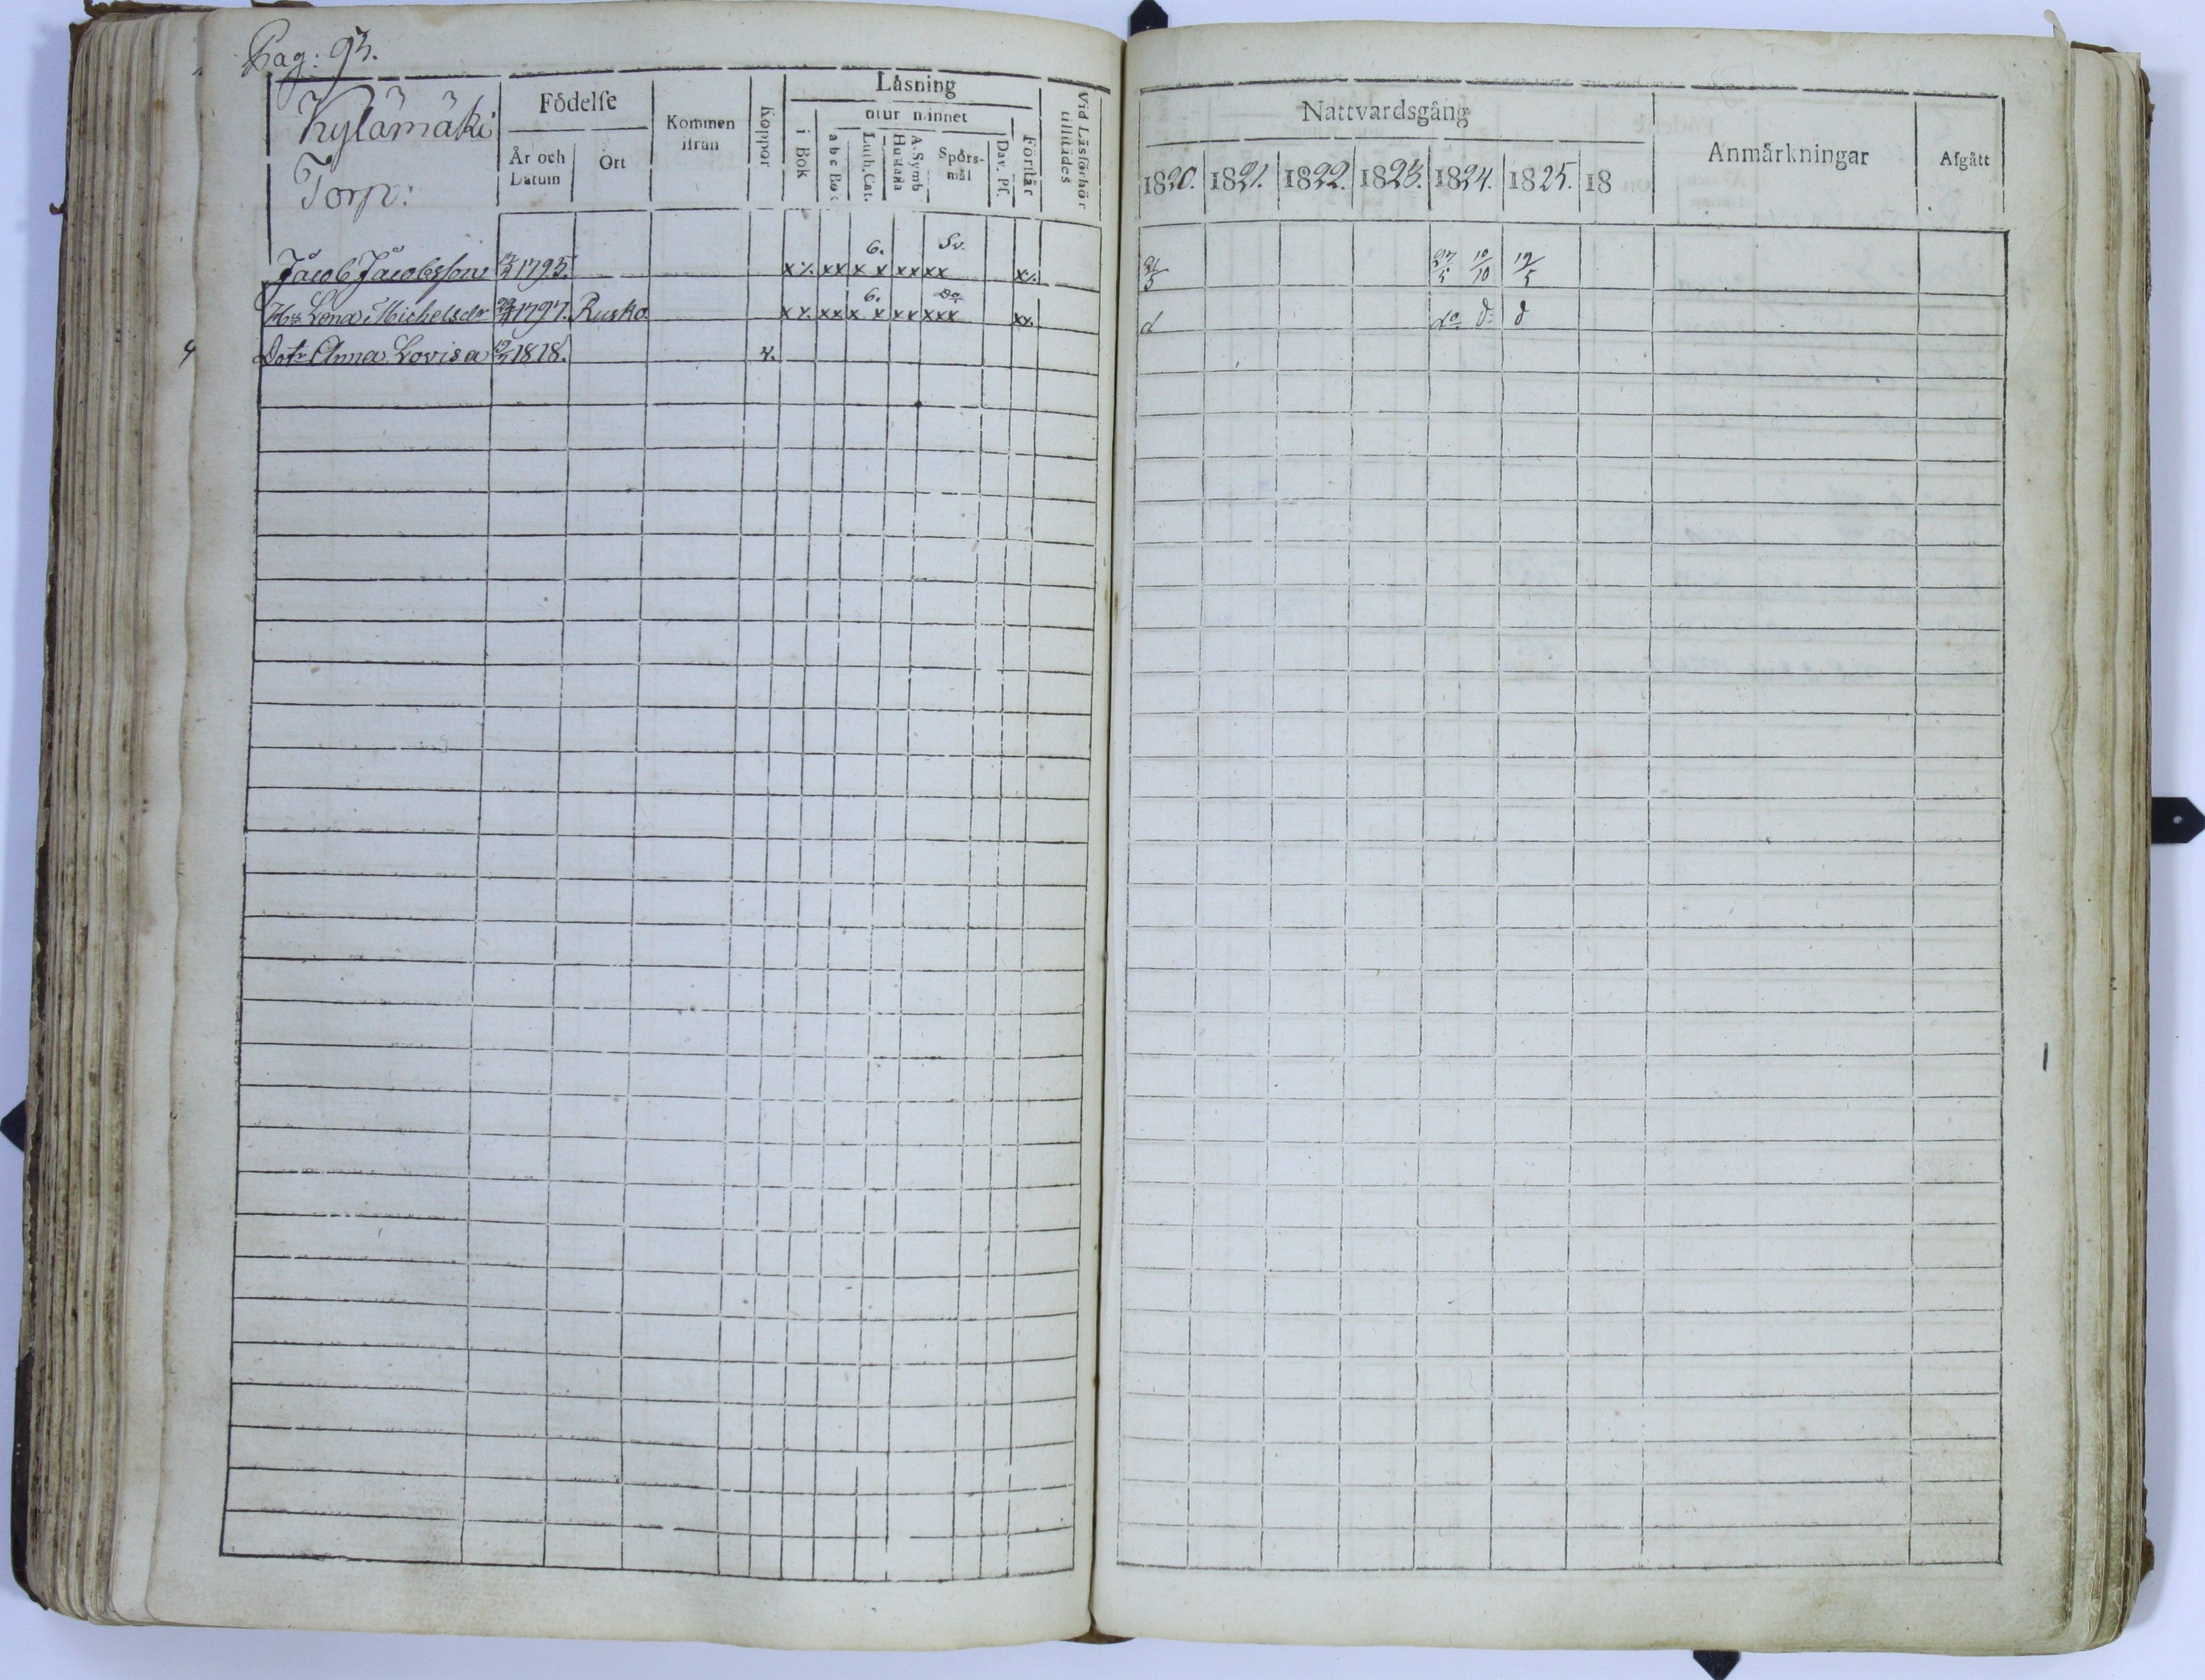 Pag: 93.
Kylämäki
Torp:
Födelse
År och Datum
Ort
Kommen ifrån
Koppor
Läsning
i Bok
utur minnet
a b c Bok
Luth. Cat.
A. Symb Hustafla
Spörs-mål
Dav. Ps.
Förstår
Vid Läsförhör tillstädes
Nattvardsgång
1820. 1821. 1822. 1823. 1824. 1825. 18
Anmärkningar
Afgått
6. Sv.
Jacob Jacobsson 1795. x x x x x x x x x
27/5 10/10 12/5
6. Do
Hu Lena Michelsdr 1797. Rusko. x x x x x x x x x x
d do d d
4 Dotr Anna Lovisa 1818. 4.